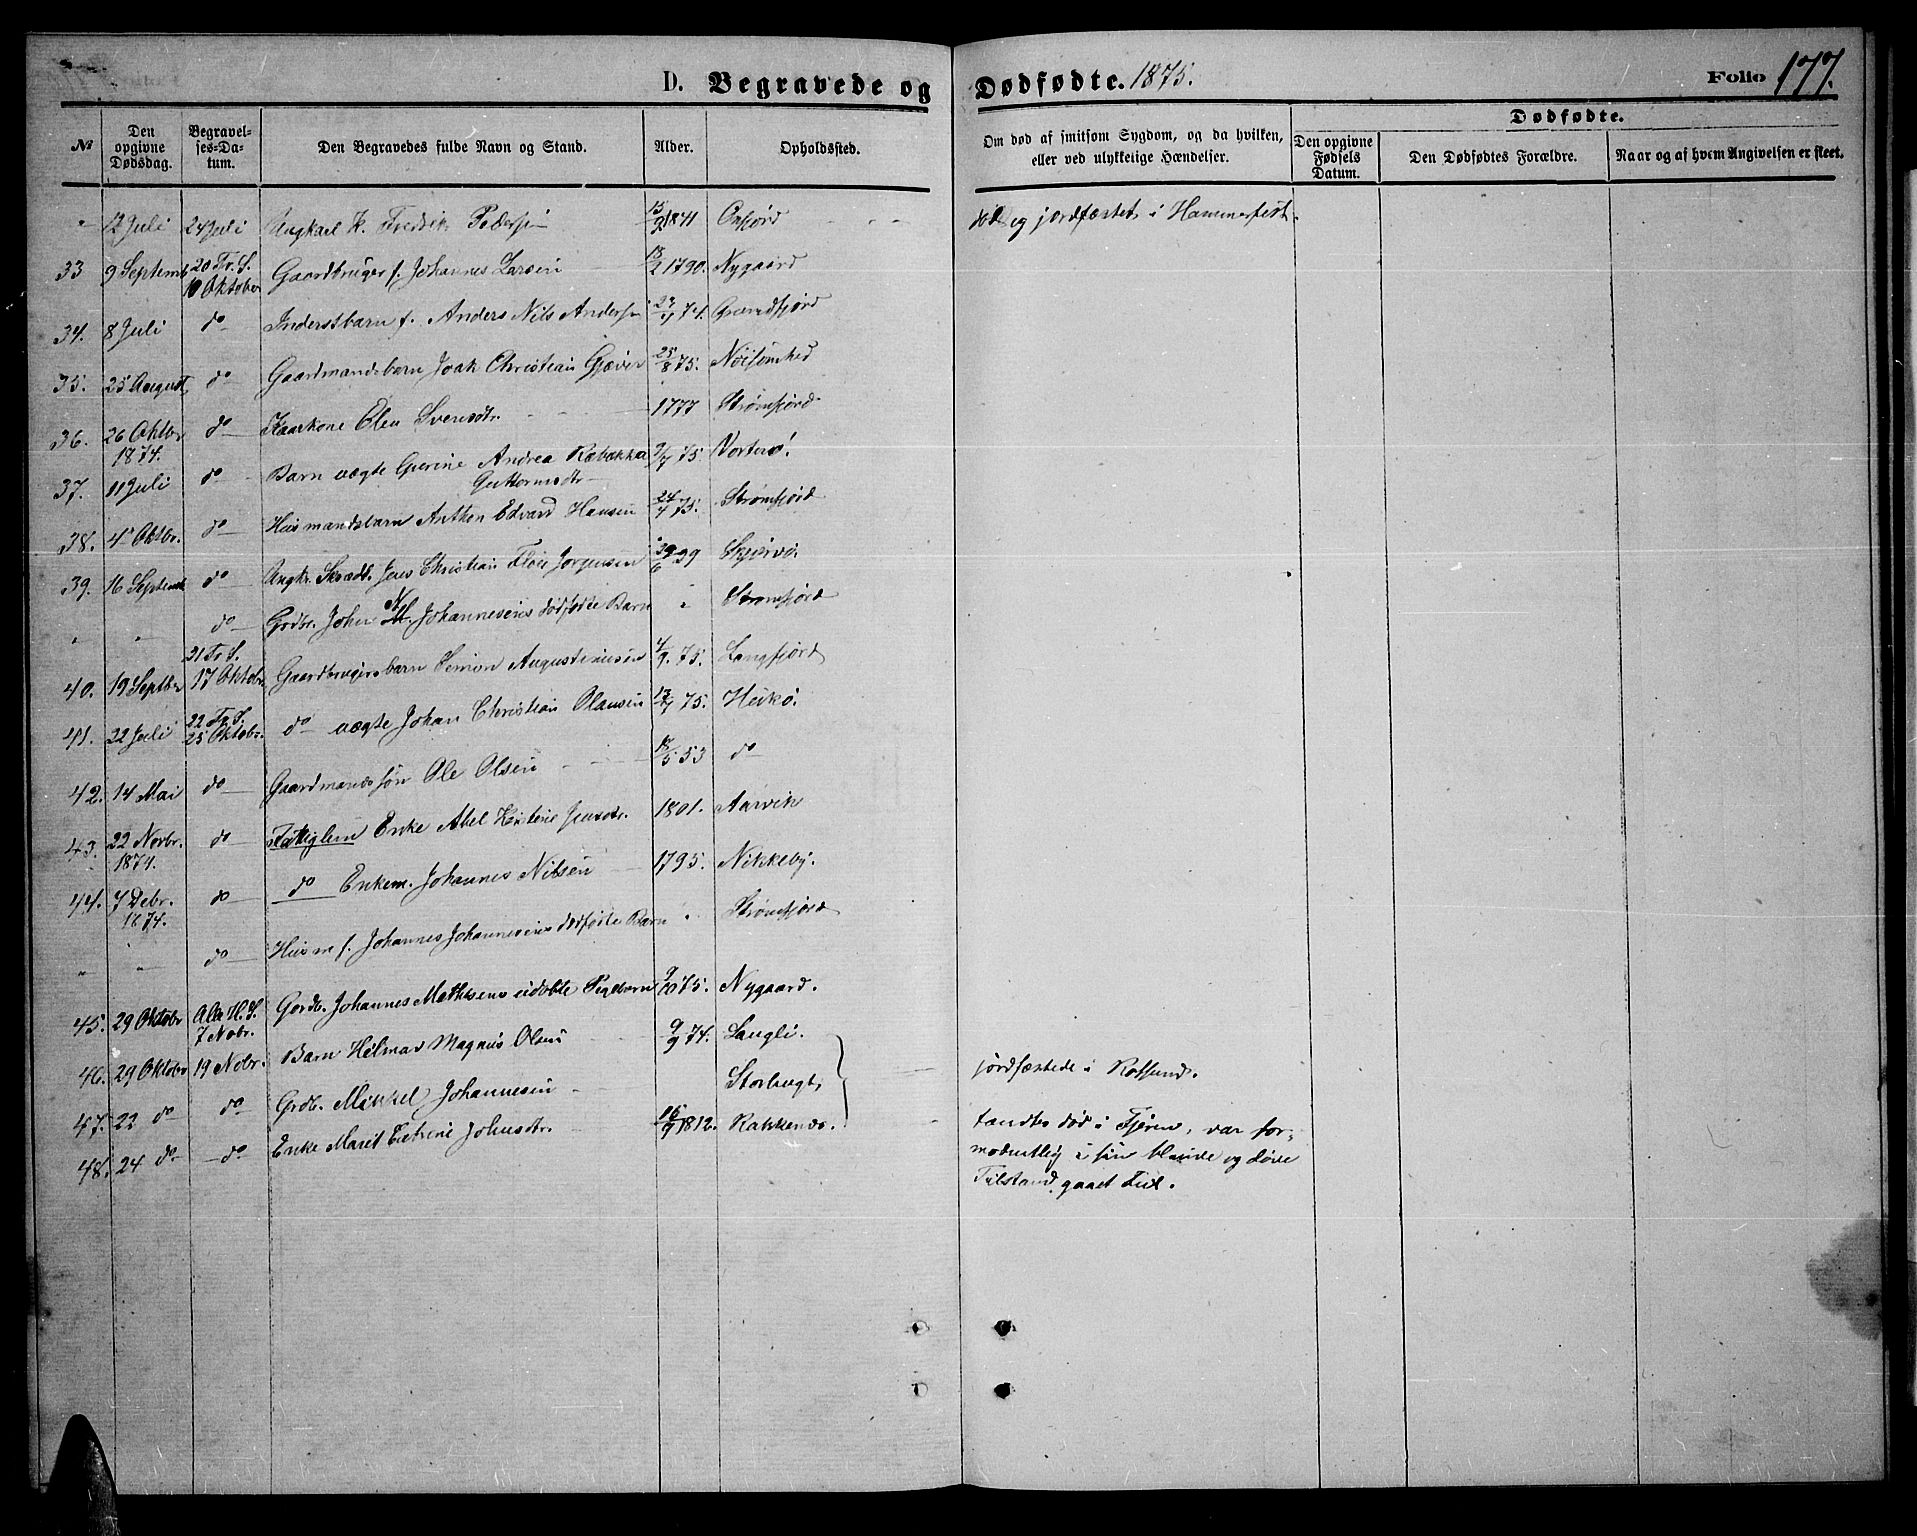 D. Begravede og Dødfødte. 1875. Folio 177.
№ Den opgivne Dødsdag. Begravelses-Datum. Den Begravedes fulde Navn og Stand. Alder. Opholdssted. Om død af smitsom Sygdom, og da hvilken, eller ved ulykkelige Hændelser. Dødfødte. Den opgivne Fødsels Datum. Den Dødfødtes Forældre. Naar og af hvem Angivelsen er skeet.
" 12 Juli 24 Juli Ungkael K. Fredrik Pedersen 1841 død og jordfæstet i Hammerfest.
33 9 Septemb 20 Tr. S. 10 Oktober Gaardbruger f. Johannes Larsen 18/2 1790. Nygaard
34. 8 Juli do Inderstbarn f. Anders Nils Andersen 74. Grundfjord
35. 25 August do Gaardmandsbarn Joak Christian Gjæver 25/8 75. Nøisomhed
36. 26 Oktbr 1874. do Kaarkone Elen Svensdtr. 1777 Strømfjord
37. 11 Juli do Barn ægte Gurine Andrea Rebekka Guttormsdtr 9/7 75. Vorterø!
38. 4 Oktbr. do Husmandsbarn Anthon Edvard Hansen 24/4 75. Strømfjord
39. 16 Septemb do Ungkr. Skrædd. Jens Christian Jørgensen 29/6 39 Skjærvø.
" " do Grdbr. Johan Johannesens dødfødte Barn " Strømfjord
40. 19 Septbr 21 Tr. S. 17 Oktober Gaardbrugersbarn Simon Augustinusen 4/9 75. Langfjord
41. 22 Juli 22 Tr. S. 25 Oktobr. do ægte Johan Christian Olausen 75. Heikø.
42. 14 Mai do Gaardmandssøn Ole Olsen 18/5 53 do
43. 22 Novbr. 1874. do Fattiglem Enke Abel Kirstine Jensdtr. 1801. Aarvik
44. 7 Debr. 1874. do do Enkem. Johannes Nilsen 1795. Nikkeby.
" " do Husm f. Johannes Johannesens dødfødte Barn " Strømfjord
45. 29 Oktobr Alle H. S. 7 Nobr. Gardb. Johannes Mathisens udøbte Pigebarn 9/10 75. Nygaard.
46. 29 Oktobr 19 Nobr. Barn Hilmar Magnus Olsen 9/9 74. Langli. jordfæstede i Rotsund.
47. 22 do do Grdb. Mikkel Johannesen Storbugt
48. 24 do do Enke Marit Johnsdtr. 1812. Rakkenæs. fandtes død i Fjæren, var formodentlig i sin blinde og døve Tilstand gaaet Feil.